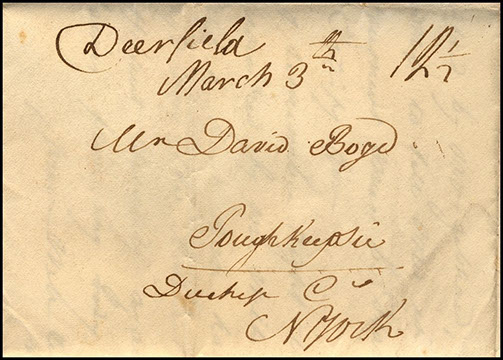 Deerfield 12½
March 3
Mr David Boyd
Poughkeepsie
Duchess Co
N York